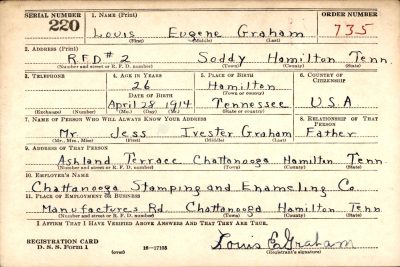 SERIAL NUMBER 1. NAME (Print) ORDER NUMBER
220 Louis Eugene Graham 735
(First) (Middle) (Last)
2. ADDRESS (Print)
R.F.D # 2 Soddy Hamilton Tenn.
(Number and street or R. F. D. number) (Town) (County) (State)
3. TELEPHONE 4. AGE IN YEARS 5. PLACE OF BIRTH 6. COUNTRY OF CITIZENSHIP
26 Hamilton
DATE OF BIRTH (Town or county)
April 28 1914 Tennessee U.S.A
(Exchange) (Number) (Mo.) (Day) (Yr.) (State or country)
7. NAME OF PERSON WHO WILL ALWAYS KNOW YOUR ADDRESS 8. RELATIONSHIP OF THAT PERSON
Mr. Jess Ivester Graham Father
(Mr., Mrs., Miss) (First) (Middle) (Last)
9. ADDRESS OF THAT PERSON
Ashland Terrace Chattanooga Hamilton Tenn.
(Number and street or R. F. D. number) (Town) (County) (State)
10. EMPLOYER'S NAME
Chattanooga Stamping and Enameling Co.
11. PLACE OF EMPLOYMENT OR BUSINESS
Manufactures Rd. Chattanooga Hamilton Tenn
(Number and street or R. F. D. number) (Town) (County) (State)
I AFFIRM THAT I HAVE VERIFIED ABOVE ANSWERS AND THAT THEY ARE TRUE.
REGISTRATION CARD Louis E. Graham
D. S. S. Form 1 (over) 16—17105 (Registrant's signature)